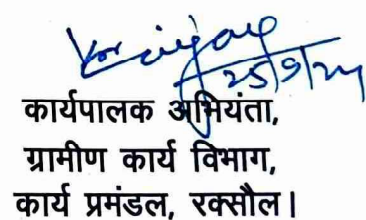 25/9/24
कार्यपालक अभियंता,
ग्रामीण कार्य विभाग,
कार्य प्रमंडल, रक्सौल।